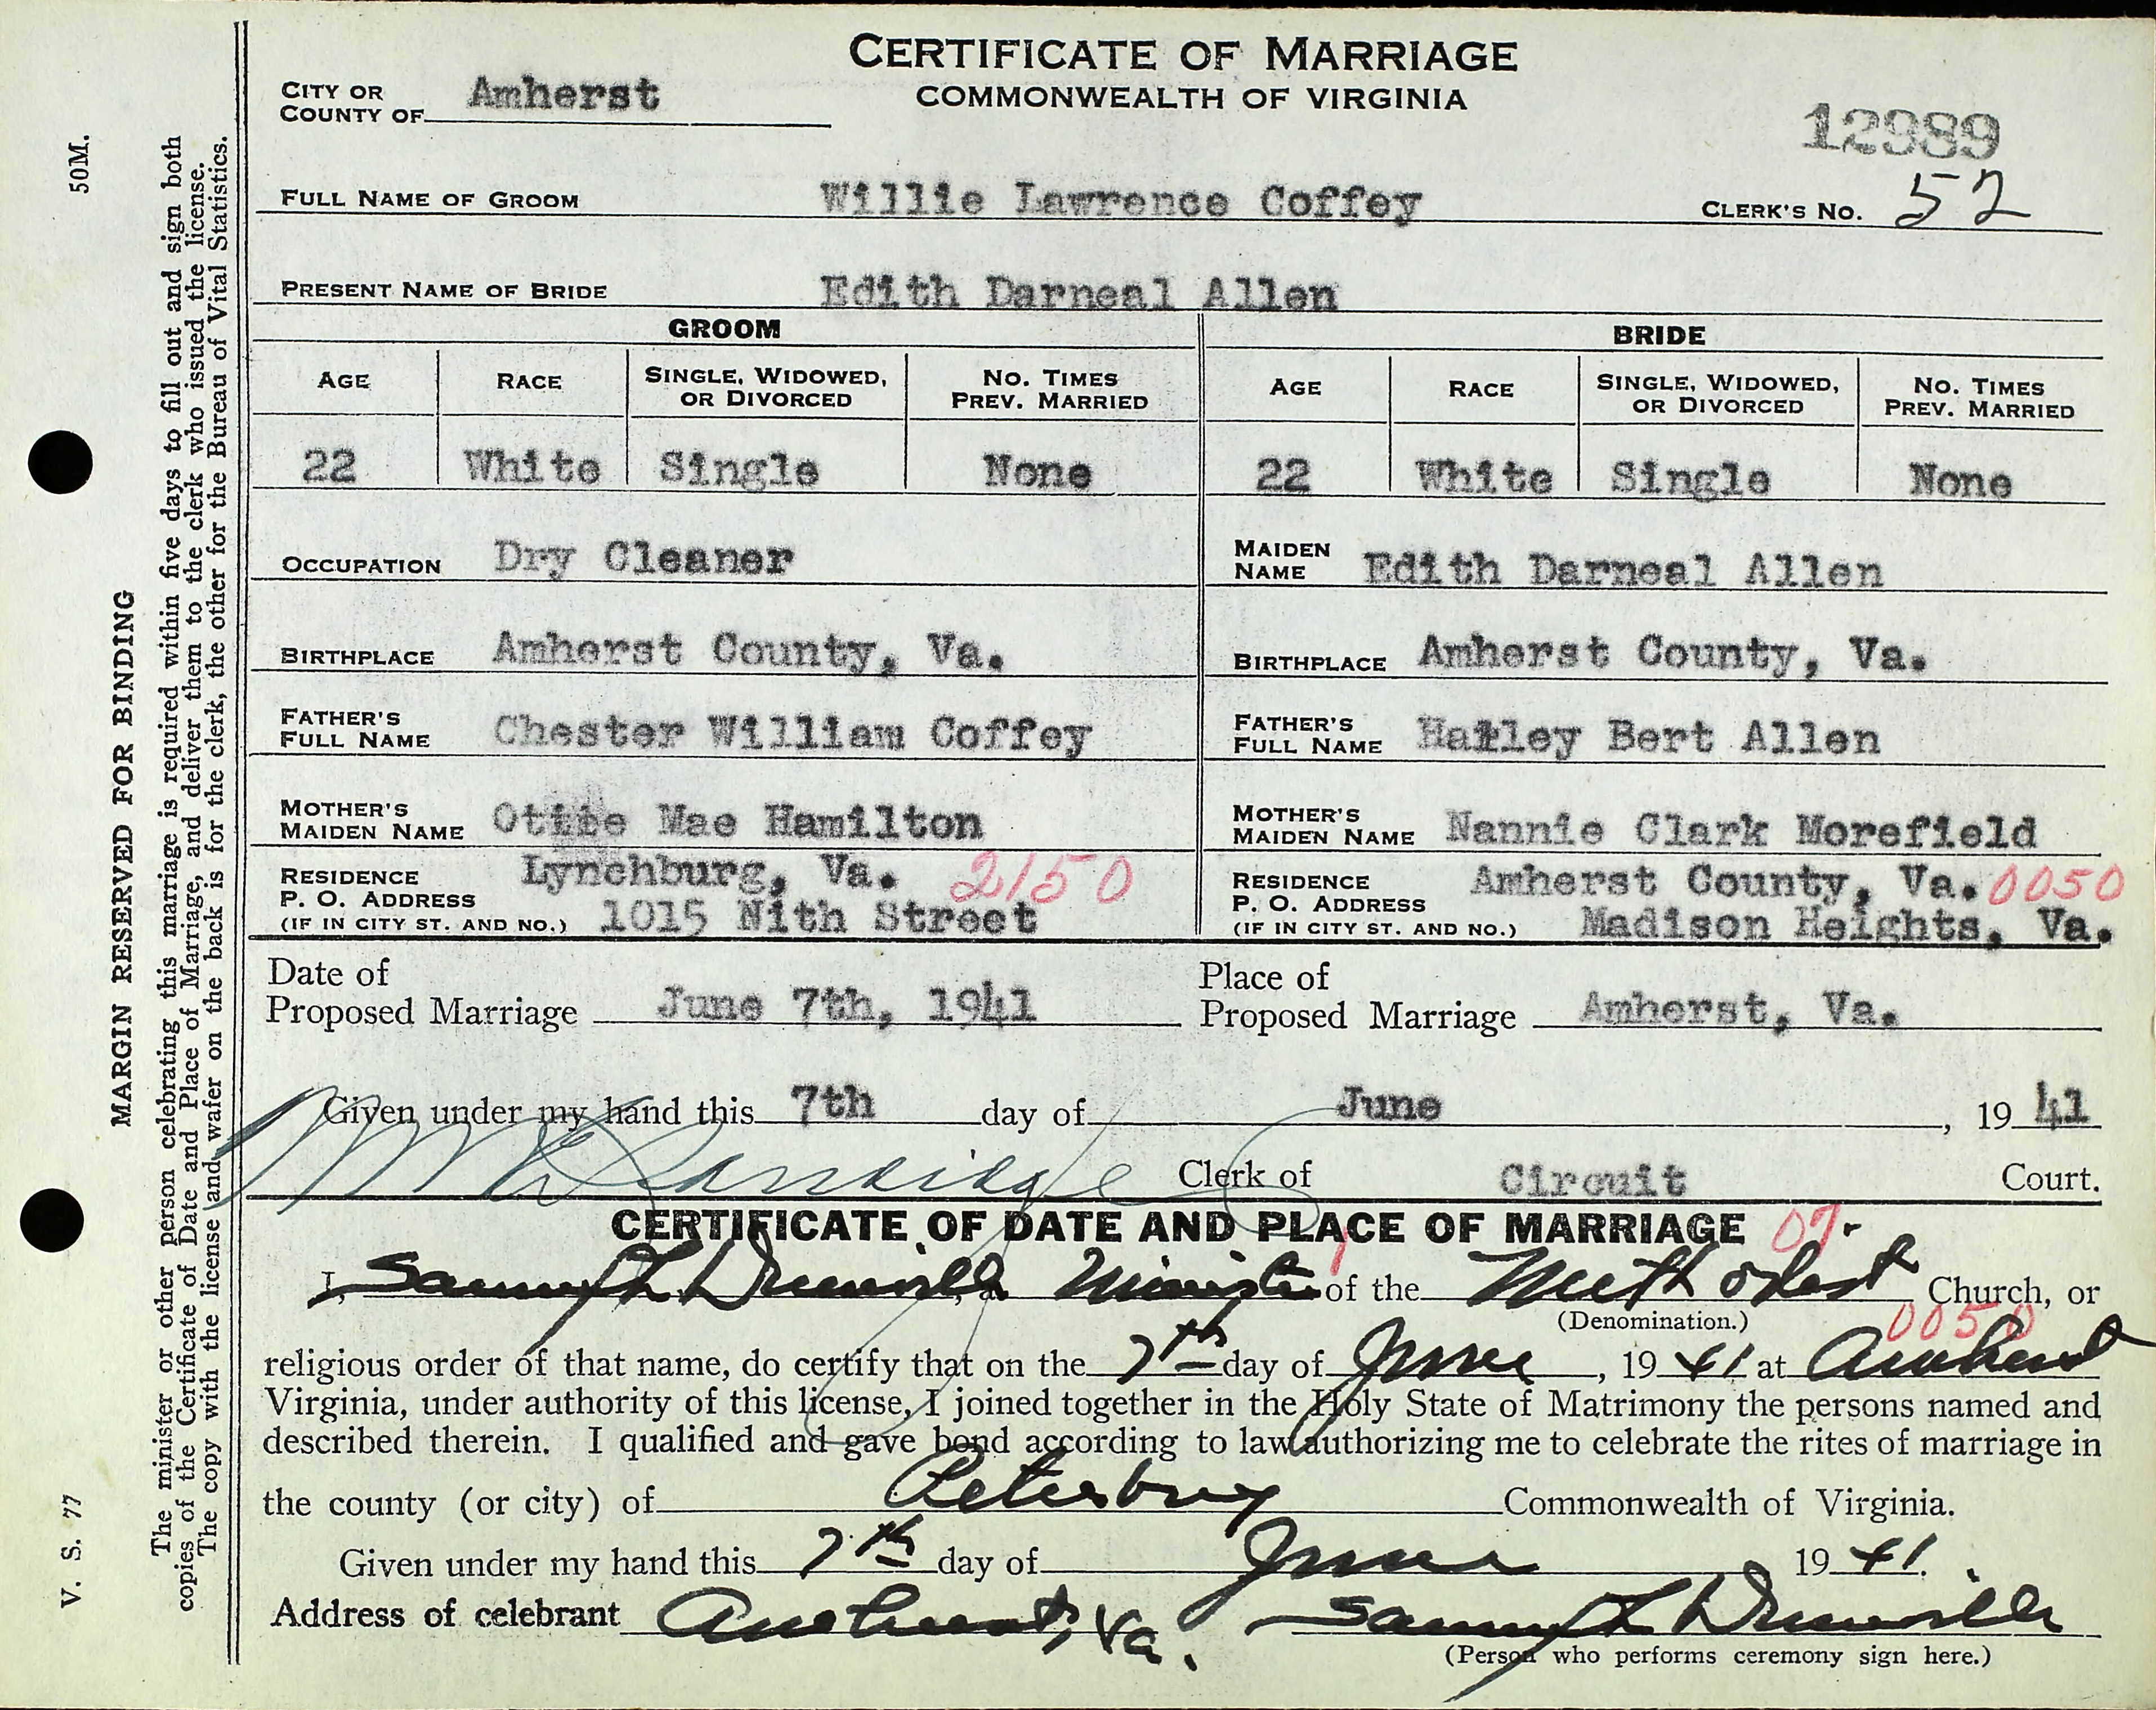 CERTIFICATE OF MARRIAGE
COMMONWEALTH OF VIRGINIA
CITY OR COUNTY OF Amherst
12989
FULL NAME OF GROOM Willie Lawrence Coffey CLERK'S NO. 52
PRESENT NAME OF BRIDE Edith Darneal Allen
GROOM BRIDE
AGE RACE SINGLE, WIDOWED, OR DIVORCED NO. TIMES PREV. MARRIED AGE RACE SINGLE, WIDOWED, OR DIVORCED NO. TIMES PREV. MARRIED
22 White Single None 22 White Single None
OCCUPATION Dry Cleaner MAIDEN NAME Edith Darneal Allen
BIRTHPLACE Amherst County, Va. BIRTHPLACE Amherst County, Va.
FATHER'S FULL NAME Chester William Coffey FATHER'S FULL NAME Harley Bert Allen
MOTHER'S MAIDEN NAME Mae Hamilton MOTHER'S MAIDEN NAME Nannie Clark Morefield
RESIDENCE Lynchburg, Va. 2150 RESIDENCE Amherst County, Va. 0050
P. O. ADDRESS 1015 Nith Street P. O. ADDRESS Madison Heights, Va.
(IF IN CITY ST. AND NO.) (IF IN CITY ST. AND NO.)
Date of Proposed Marriage June 7th, 1941 Place of Proposed Marriage Amherst, Va.
Given under my hand this 7th day of June, 1941
Clerk of Circuit Court.
CERTIFICATE OF DATE AND PLACE OF MARRIAGE 07-
I, a Minister of the Methodist Church, or
(Denomination.) 0050
religious order of that name, do certify that on the 7th day of June, 1941 at Amherst
Virginia, under authority of this license, I joined together in the Holy State of Matrimony the persons named and
described therein. I qualified and gave bond according to law authorizing me to celebrate the rites of marriage in
the county (or city) of Petersburg Commonwealth of Virginia.
Given under my hand this 7th day of June 1941.
Address of celebrant Amherst, Va.
(Person who performs ceremony sign here.)
V. S. 77 50M.
MARGIN RESERVED FOR BINDING
The minister or other person celebrating this marriage is required within five days to fill out and sign both
copies of the Certificate of Date and Place of Marriage, and deliver them to the clerk who issued the license.
The copy with the license and wafer on the back is for the clerk, the other for the Bureau of Vital Statistics.